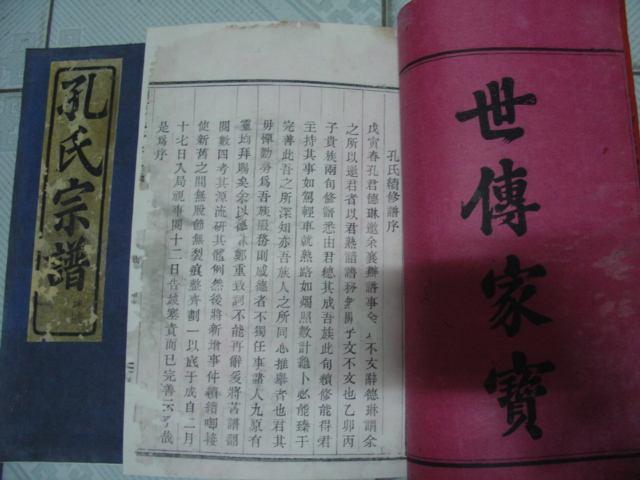 世傳家寶
孔氏續修譜序
戊寅春孔君德琳邀余襄辦譜事余以不文辭德琳謂余
之所以邀君者以君熟譜務非關于文不文也乙卯丙
子貴族兩旬修譜悉由君總其成吾族此旬續修能得君
主持其事如駕輕車就熟路如燭照數計龜卜必能臻于
完善此吾之所深知亦吾族人之所同心推舉者也君其
毋憚勤勞爲吾族服務則感德者不獨任事諸人九原有
靈均拜賜矣余以德琳鄭重致詞不能再辭爰將舊譜
閱數四考其源流研其體例然後將新增事件續續啣接
使新舊之間無股節無裂痕整齊劃一以底于成自二月
十七日入局視事閱十二日告竣塞責而已完善云乎哉
是爲序
孔氏宗譜